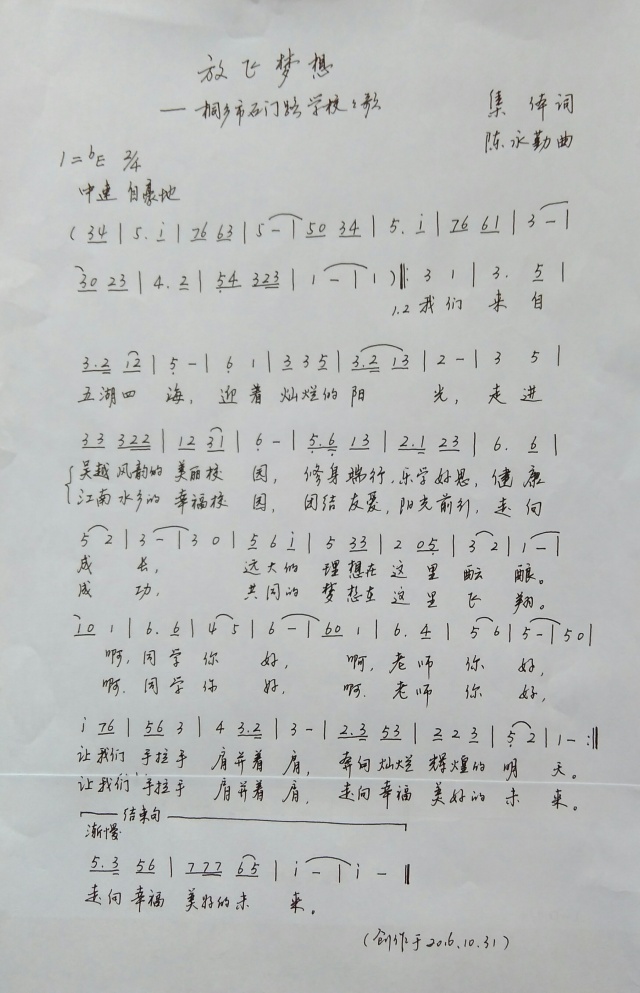 放飞梦想
— 桐乡市石门路学校之歌
集体词
陈永勤曲
1=♭E 2/4
中速 自豪地
( 34 | 5. i | 76 63 | 5 - | 50 34 | 5. i | 76 61 | 3 - |
30 23 | 4. 2 | 54 323 | 1 - | 1 ) ‖: 3 1 | 3. 5 |
1.2 我们 来自
3.2 12 | 5 - | 6 1 | 3 3 5 | 3.2 13 | 2 - | 3 5 |
五湖四 海, 迎着 灿烂的 阳 光, 走进
33 322 | 12 31 | 6 - | 5.6 13 | 2.1 23 | 6. 6 |
吴越 风韵的 美丽校 园, 修身 端行, 乐学 好思, 健康
江南 水乡的 幸福校 园, 团结 友爱, 阳光 前引, 走向
5 2 | 3 - | 3 0 | 5 6 i | 5 33 | 2 05 | 3 2 | 1 - |
成 长, 远大的 理想在 这里 酝 酿。
成 功, 共同的 梦想在 这里 飞 翔。
10 1 | 6. 6 | 4 5 | 6 - | 60 1 | 6. 4 | 5 6 | 5 - | 50 |
啊, 同学 你 好, 啊, 老师 你 好,
啊, 同学 你 好, 啊, 老师 你 好,
i 76 | 56 3 | 4 3.2 | 3 - | 2.3 53 | 2 2 3 | 5 2 | 1 - :‖
让我们 手拉手 肩并着 肩, 奔向灿烂 辉煌的 明 天。
让我们 手拉手 肩并着 肩, 走向幸福 美好的 未 来。
结束句
渐慢
5.3 56 | 777 65 | i - | i - ‖
走向 幸福 美好的未 来。
(创作于2016.10.31)